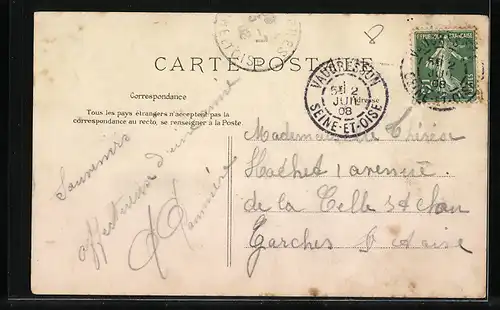 CARTE POSTALE
8
Correspondance
Tous les pays étrangers n'acceptent pas la
correspondance au recto, se renseigner à la Poste.
VAUCRESSON
5E 2
JUIN
08
SEINE-ET-OISE
Adresse
Souvenirs
affectueux d'une amie
Mademoiselle Thérèse
Hachet 1 avenue
de la Celle St Clou
Garches S et Oise